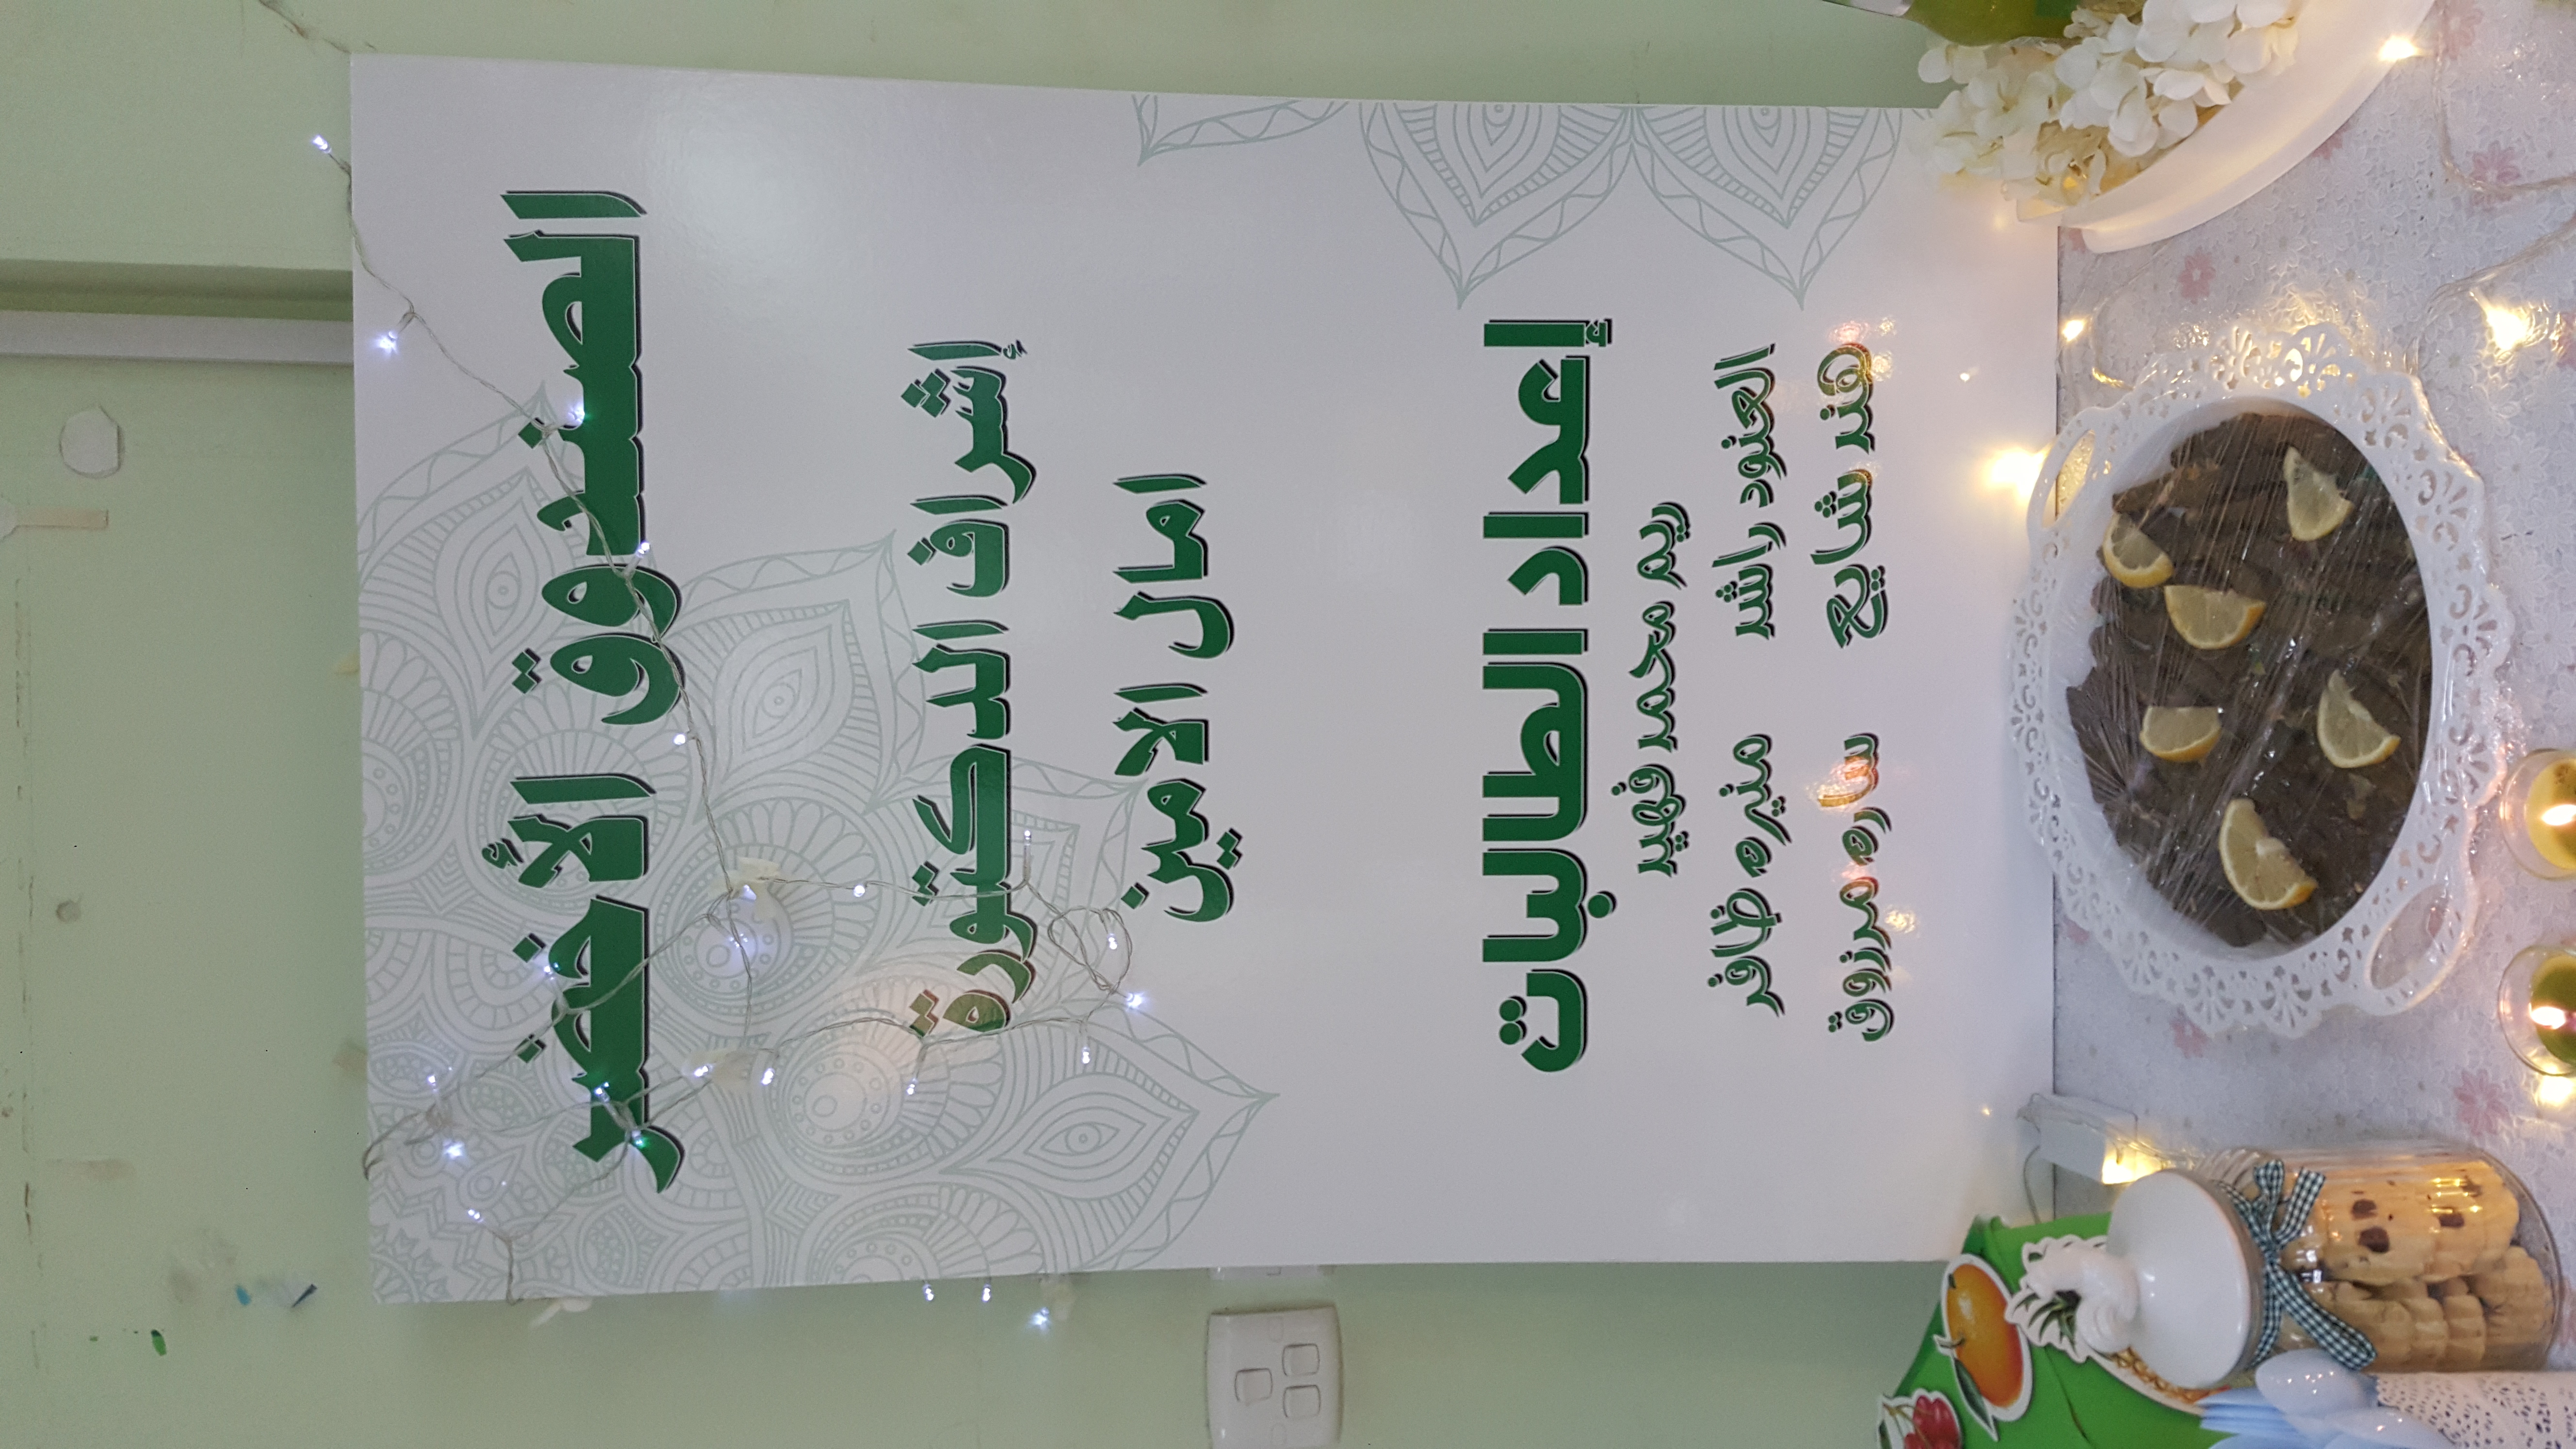 الصندوق الأخضر
إشراف الدكتورة
امال الامين
إعداد الطالبات
ريم محمد فهيد
العنود راشد منيره ظافر
هند شايع ساره مرزوق